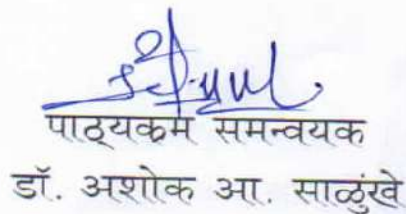 पाठ्यक्रम समन्वयक
डॉ. अशोक आ. साळुंखे